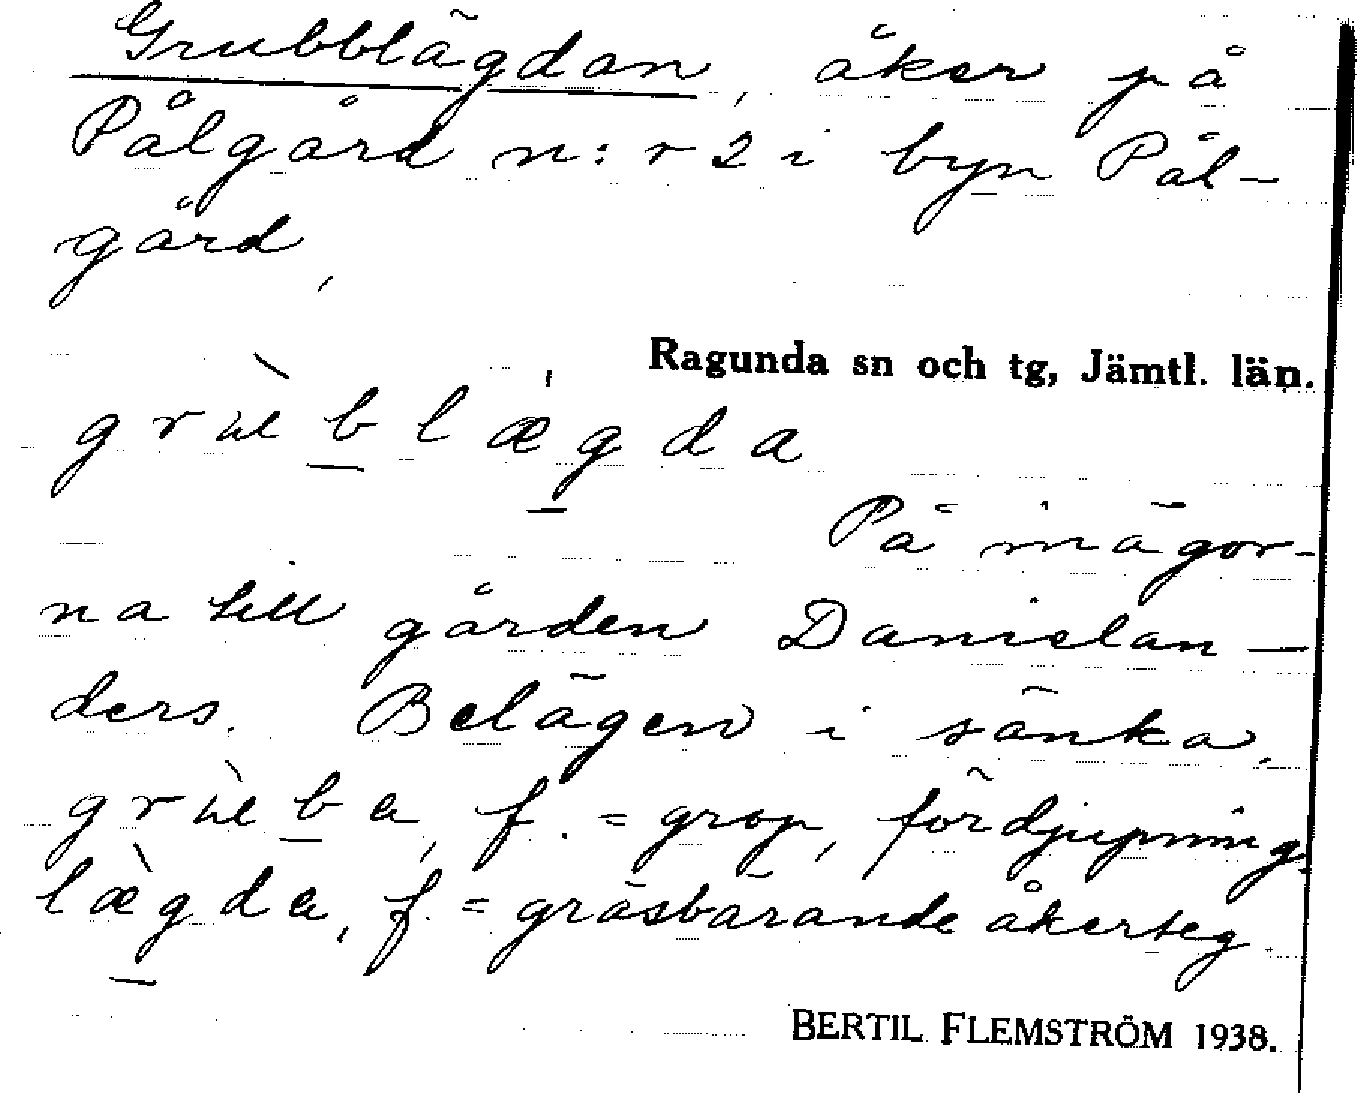 Grubblägdan, åker på
Pålgård n:r 2 i byn Pål-
gård,
Ragunda sn och tg, Jämtl. län.
grùeblǽgda
På inägor-
na till gården Danielan-
ders. Belägen i sänka,
grùeba, f. = grop, fördjupning
læ̀gda, f. = gräsbärande åkerteg.
BERTIL FLEMSTRÖM 1938.